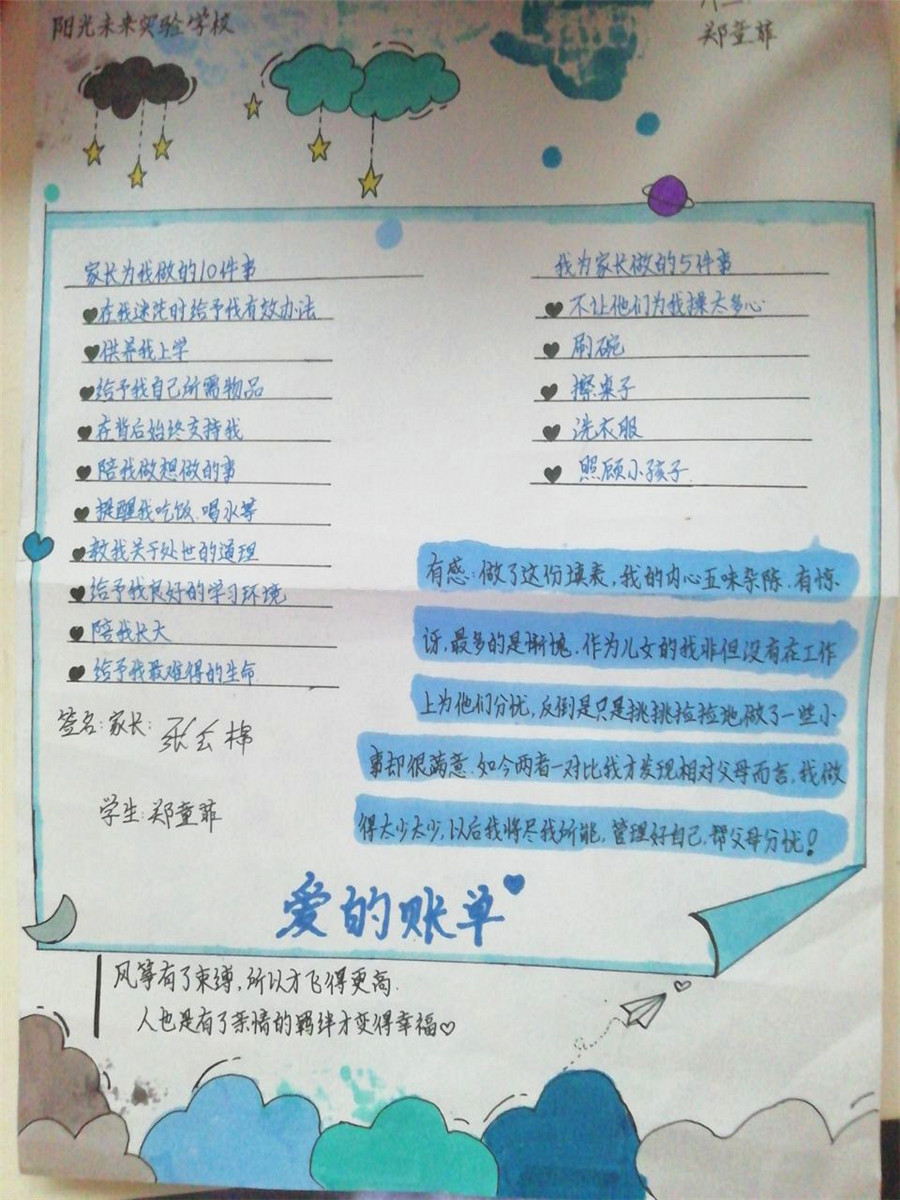 阳光未来实验学校
郑童菲
家长为我做的10件事
在我迷茫时给予我有效办法
供养我上学
给予我自己所需物品
在背后始终支持我
陪我做想做的事
提醒我吃饭、喝水等
教我关于处世的道理
给予我良好的学习环境
陪我长大
给予我最难得的生命
签名:家长:
学生:郑童菲
我为家长做的5件事
不让他们为我操太多心
刷碗
擦桌子
洗衣服
照顾小孩子
有感:做了这份填表,我的内心五味杂陈.有惊
讶,最多的是惭愧.作为儿女的我非但没有在工作
上为他们分忧,反倒是只是挑挑捡捡地做了一些小
事却很满意.如今两者一对比我才发现相对父母而言,我做
得太少太少,以后我将尽我所能,管理好自己,帮父母分忧!
爱的账单
风筝有了束缚,所以才飞得更高.
人也是有了亲情的羁绊才变得幸福